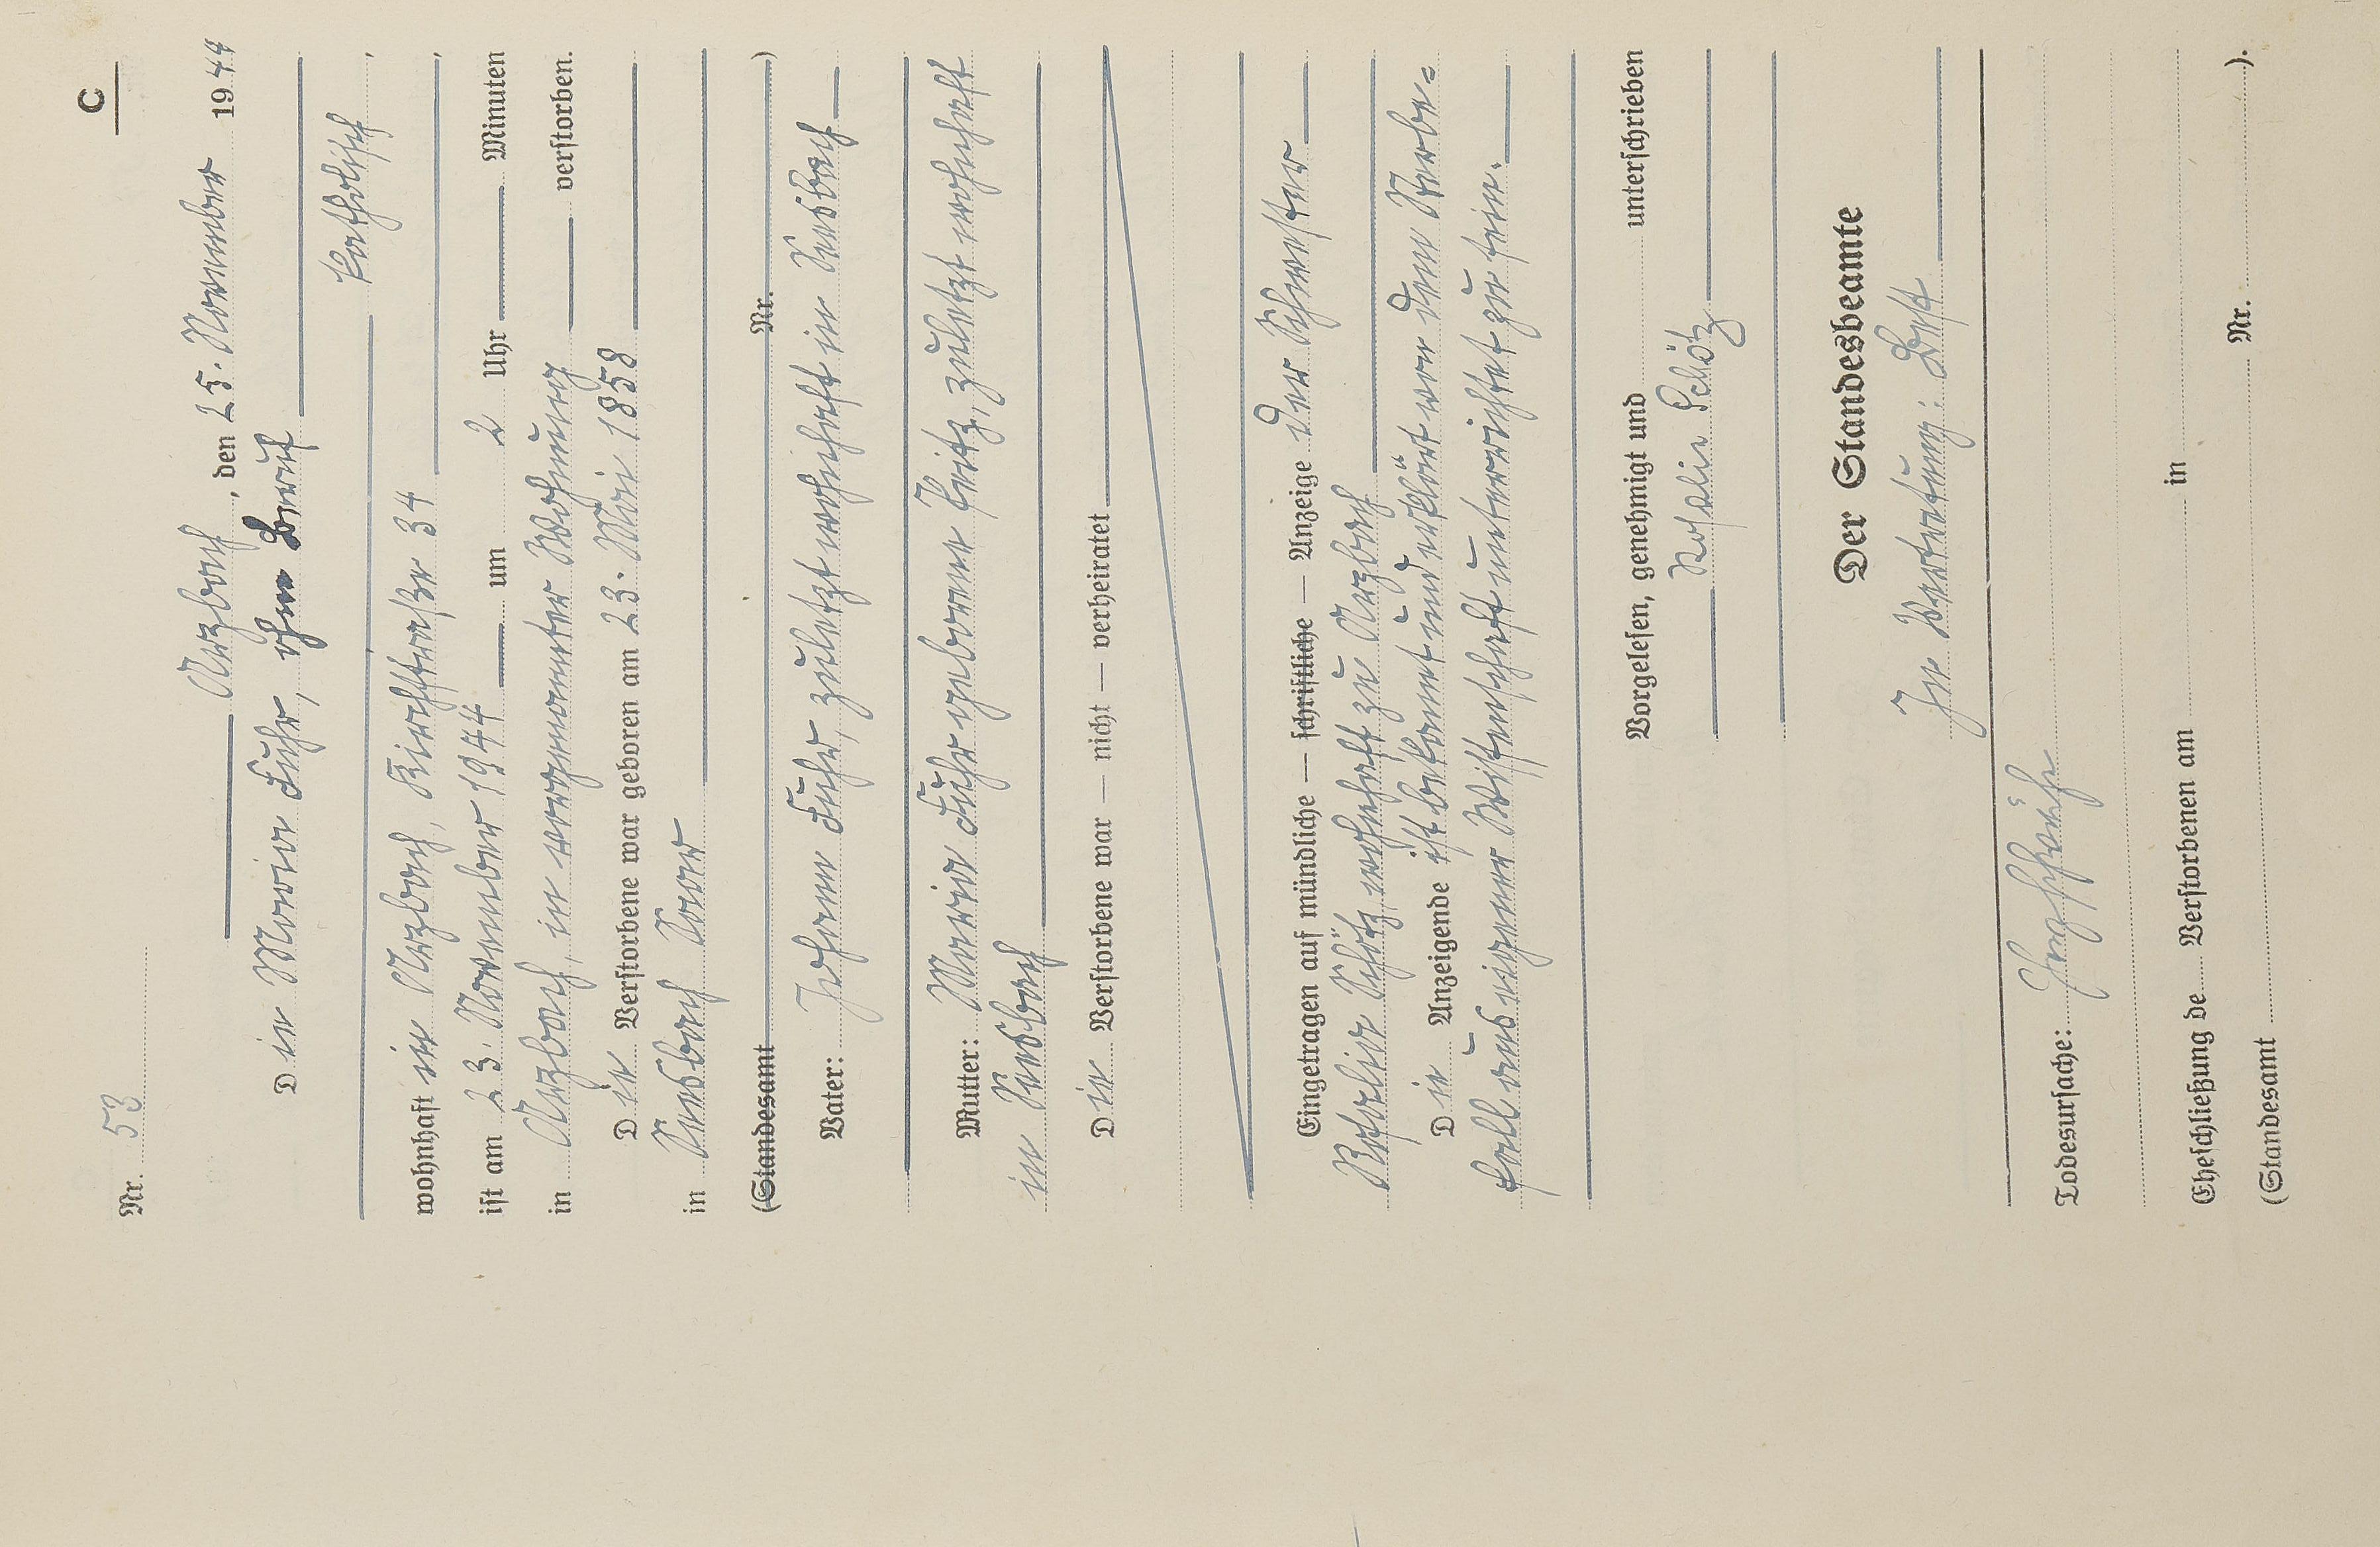 C
Nr. 53
Arzbach, den 25. November 1944
Die Maria Fuhr, ohne Beruf
katholisch,
wohnhaft in Arzbach, Kirchstraße 34,
ist am 23. November 1944 um 2 Uhr Minuten
in Arzbach, in vorgenannter Wohnung verstorben.
Die Verstorbene war geboren am 23. Mai 1858
in
(Standesamt Nr. )
Vater: Johann Fuhr, zuletzt wohnhaft in
Mutter: Maria Fuhr geborene Fritz, zuletzt wohnhaft
in
Die Verstorbene war — nicht — verheiratet
Eingetragen auf mündliche — schriftliche — Anzeige der Schwester
Rosalia Schötz, wohnhaft zu Arzbach
Die Anzeigende ist bekannt und erklärt von dem Sterbe=
fall aus eigener Wissenschaft unterrichtet zu sein.
Vorgelesen, genehmigt und unterschrieben
Schötz
Der Standesbeamte
In Vertretung:
Todesursache:
Eheschließung de Verstorbenen am in
(Standesamt Nr. ).